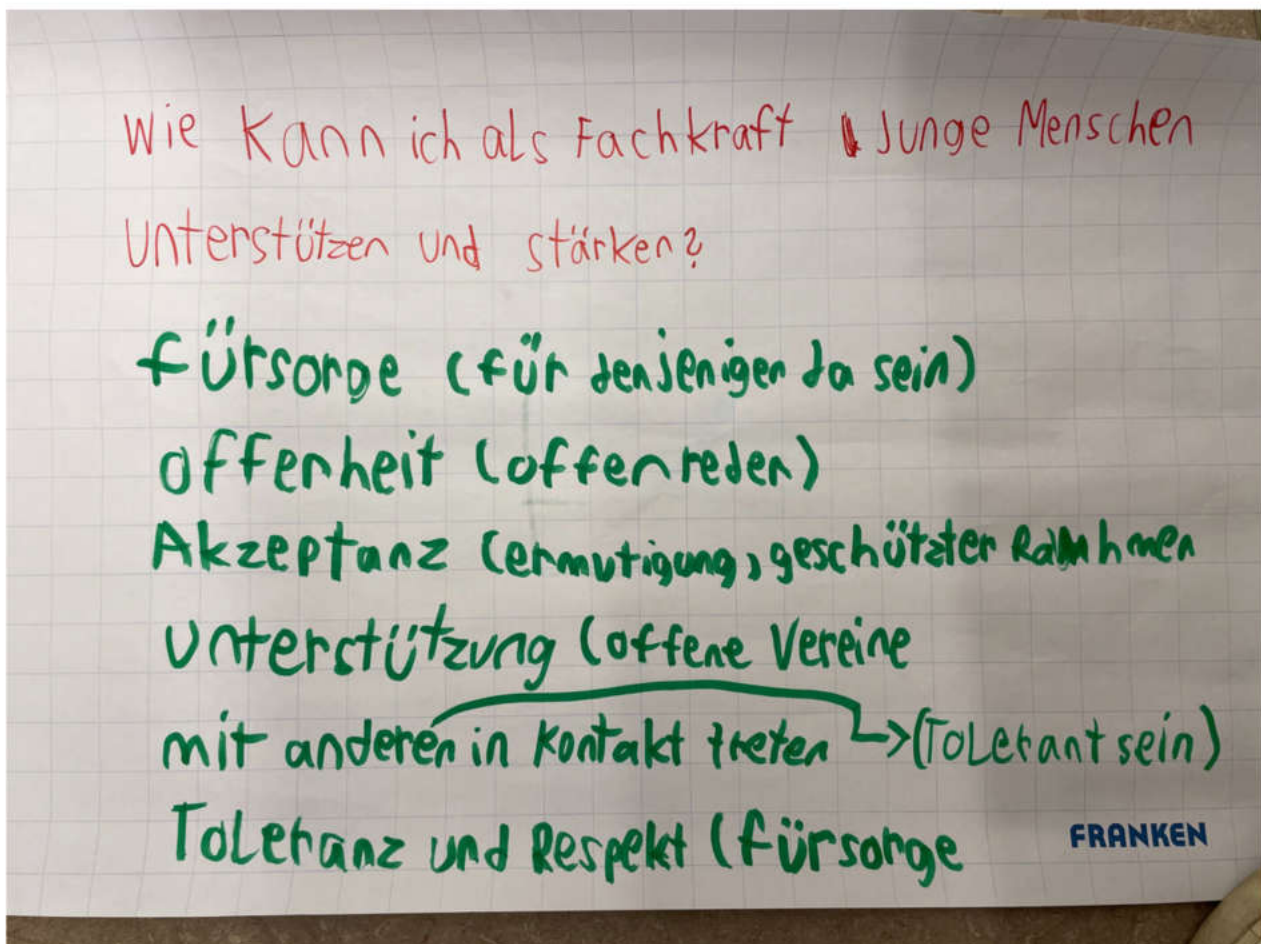 Wie kann ich als Fachkraft Junge Menschen
unterstützen und stärken?
fürsorge (für denjenigen da sein)
offenheit (offen reden)
Akzeptanz (ermutigung, geschützter Rahmen
unterstützung (offene Vereine
mit anderen in Kontakt treten → (Tolerant sein)
Toleranz und Respekt (fürsorge
FRANKEN